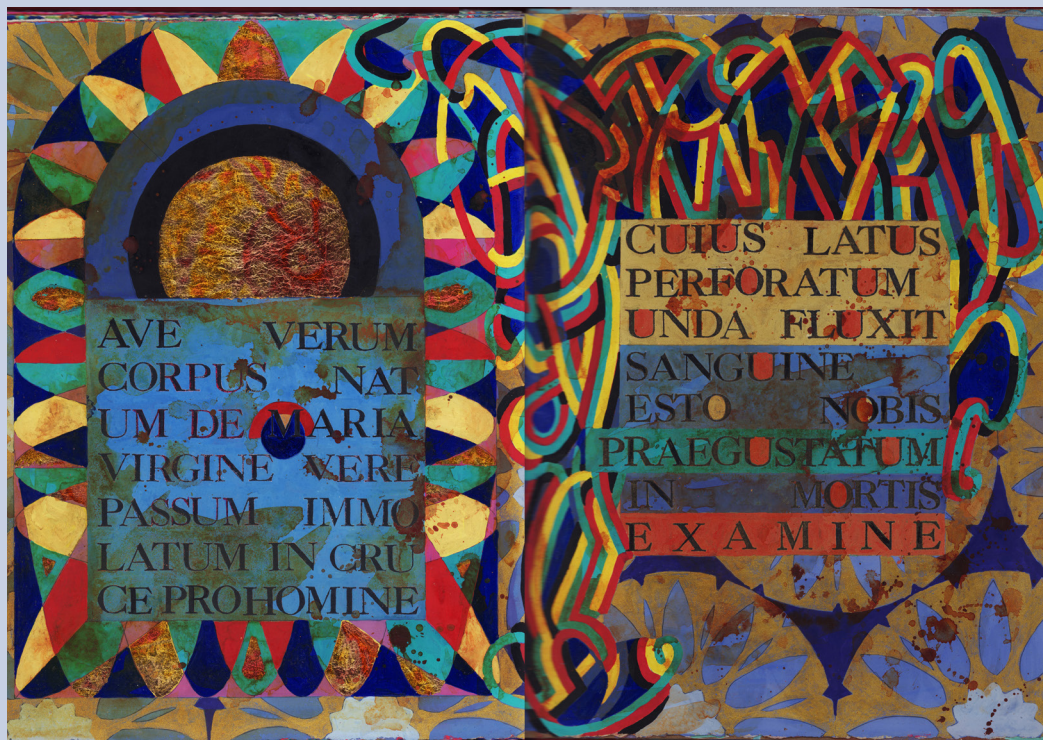 AVE VERUM
CORPUS NAT
UM DE MARIA
VIRGINE VERE
PASSUM IMMO
LATUM IN CRU
CE PROHOMINE
CUIUS LATUS
PERFORATUM
UNDA FLUXIT
SANGUINE
ESTO NOBIS
PRAEGUSTATUM
IN MORTIS
EXAMINE